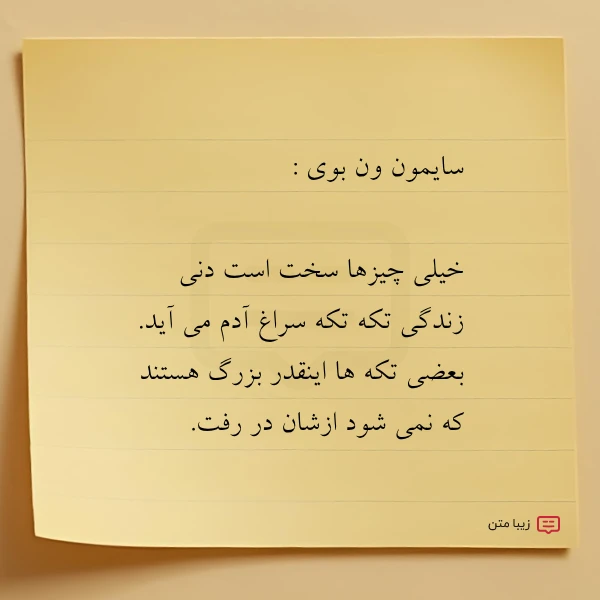 سایمون ون بوی :
خیلی چیزها سخت است دنی
زندگی تکه تکه سراغ آدم می آید.
بعضی تکه ها اینقدر بزرگ هستند
که نمی شود ازشان در رفت.
زیبا متن